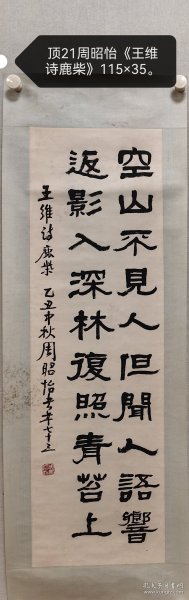 顶21周昭怡《王维
诗鹿柴》115×35。
空山不見人但聞人語響
返影入深林復照青苔上
王維詩鹿柴 乙丑中秋周昭怡書年七十三